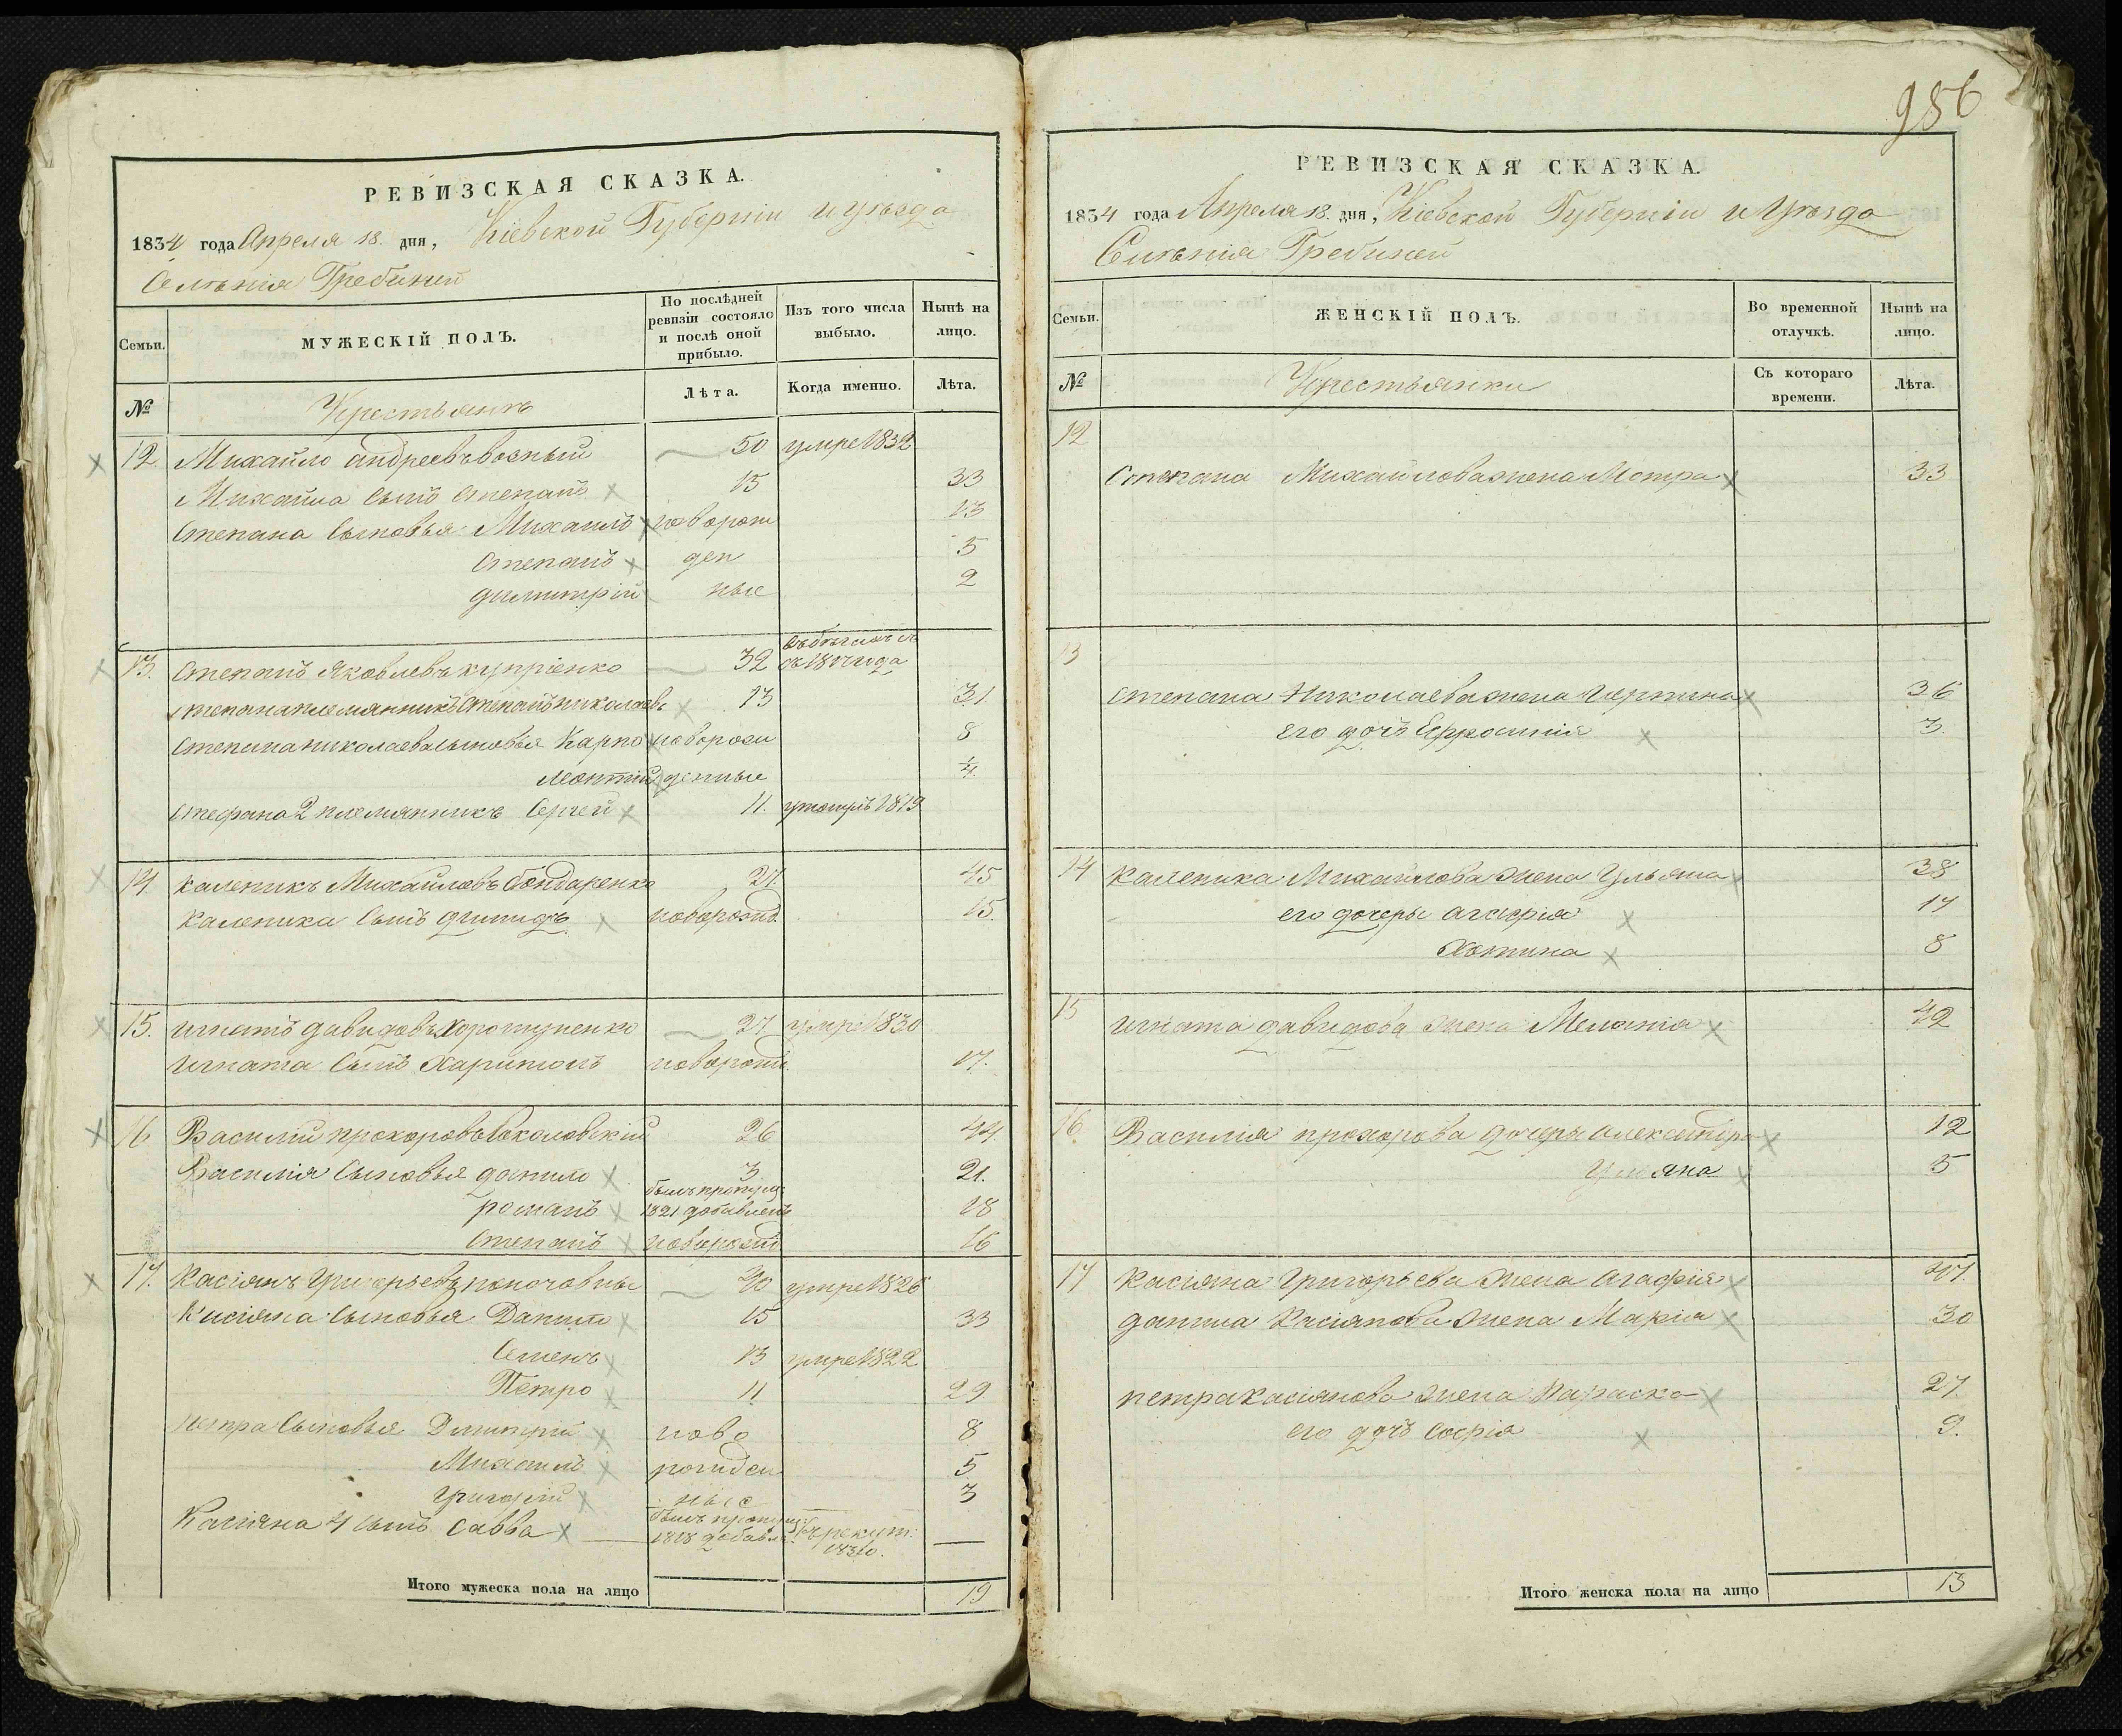 956
РЕВИЗСКАЯ СКАЗКА.
1834 года Апреля 18. дня, Кіевской Губерніи и уѣзда
Селѣнія Гребиней
Семьи.
МУЖЕСКІЙ ПОЛЪ.
По послѣдней ревизіи состояло и послѣ оной прибыло.
Изъ того числа выбыло.
Нынѣ на лицо.
№
Крестьянъ
Лѣта.
Когда именно.
Лѣта.
12 Михайло андреевъ возный 50 умре 1832
Михайла Сынъ Степанъ 15 33
Степана Сыновья Михаилъ новорож 13
Степанъ ден 5
димитрій ные 2
13. Степанъ Яковлевъ купріенко 32
Степана племянникъ Степанъ николаевъ 13 31
Степана николаева сыновья Карпо новорож 8
леонтій денные 1/4
Стефана 2 племянникъ Сергей 11. 1819
14 каленикъ Михайловъ бондаренко 27. 45
каленика Сынъ новорожд 15.
15. игнатъ давидовъ 27 умре 1830
игната Сынъ Харитонъ новорожд 17.
16 Василий прохоровъ Соколовскій 26 44
Василія Сыновья данило 3 21.
романъ былъ пропущ: 1821 добавленъ 18
Степанъ новорожд 16
17. Касіянъ Григорьевъ 40 умре 1826
Касіяна Сыновья Данило 15 33
Семенъ 13 умре 1822
Петро 11 29
петра Сыновья Димитрій ново 8
Михаилъ рожден 5
Григорій ные 3
Касіяна 4 сынъ Савва былъ пропущ: 1818 добавл: въ рекут:
Итого мужеска пола на лицо 19
РЕВИЗСКАЯ СКАЗКА.
1834 года Апреля 18. дня, Кіевской Губерніи и уѣзда
Селѣнія Гребиней
Семьи.
ЖЕНСКІЙ ПОЛЪ.
Во временной отлучкѣ.
Нынѣ на лицо.
№
Крестьянки
Съ котораго времени.
Лѣта.
12
Степана Михайлова жена Мотра 33
13
Степана Николаева жена 36
его дочь Ефросинія 3.
14 каленика Михайлова жена Ульяна 38
его дочеры агафія 17
Хотина 8
15 игната давидова жена Меланія 42
16. Василія прохорова дочеры александра 12
Ульяна 5
17 Касіяна Григорьева жена агафія 47.
данила Касіянова жена Марія 30
петра касіянова жена Параска 27
его дочь Софія 9.
Итого женска пола на лицо 13